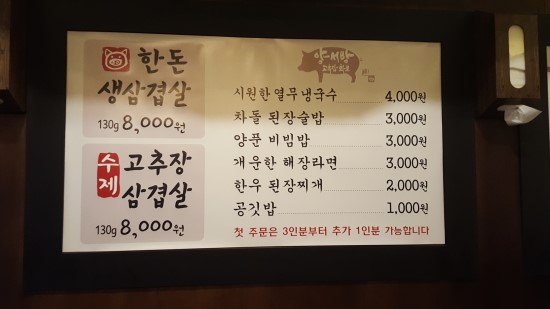 한돈
생삼겹살
130g 8,000원
수제
고추장
삼겹살
130g 8,000원
시원한 열무냉국수 4,000원
차돌 된장술밥 3,000원
양푼 비빔밥 3,000원
개운한 해장라면 3,000원
한우 된장찌개 2,000원
공깃밥 1,000원
첫 주문은 3인분부터 추가 1인분 가능합니다